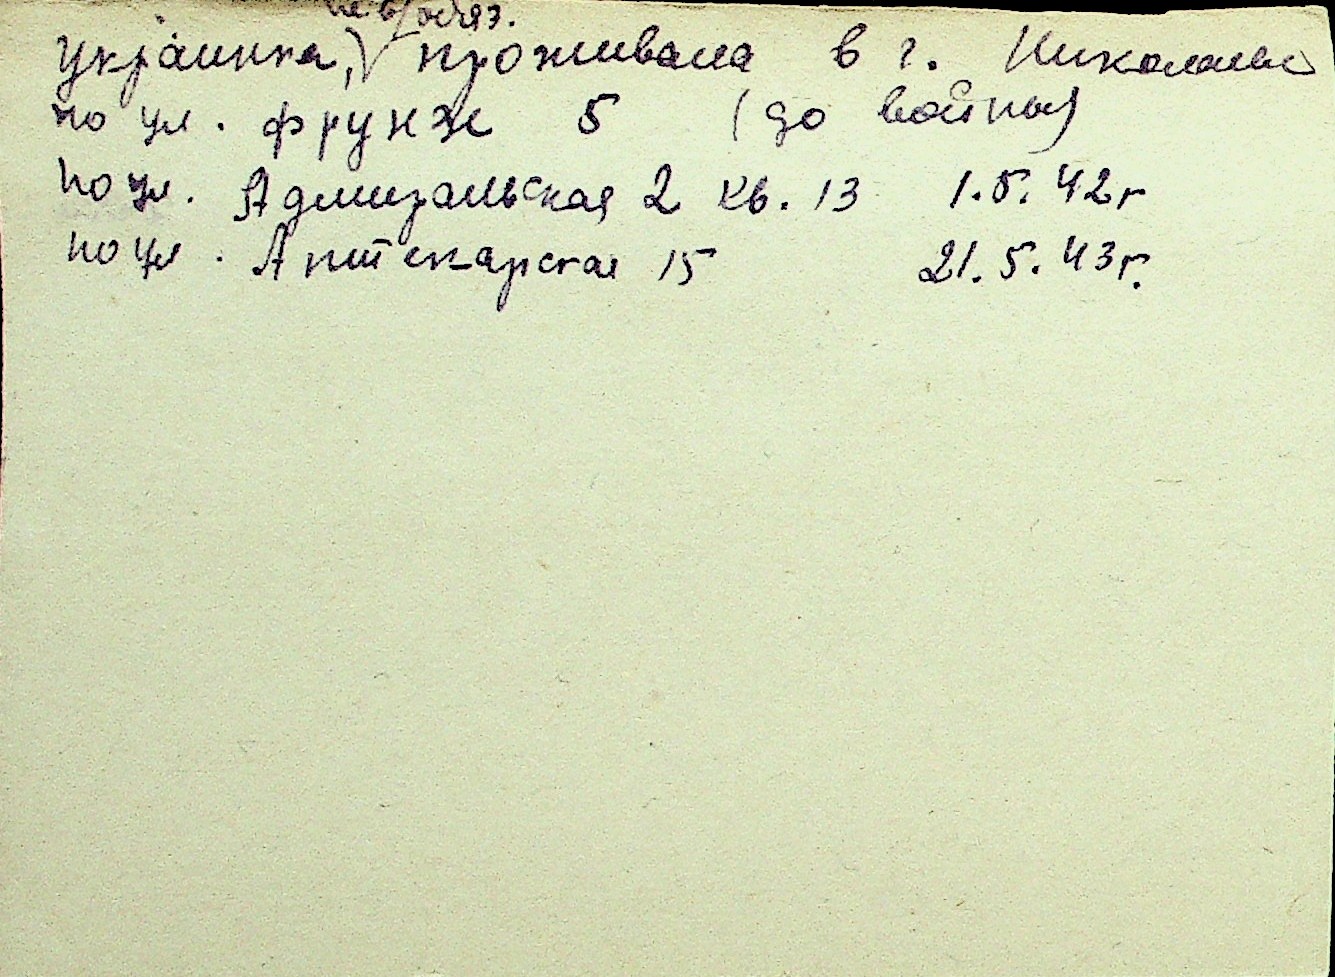 не в/обяз.
украинка, проживала в г. Николаеве
по ул. Фрунзе 5 (до войны)
по ул. Адмиральская 2 кв. 13 1.5.42г
по ул. Аптекарская 15 21.5.43г.